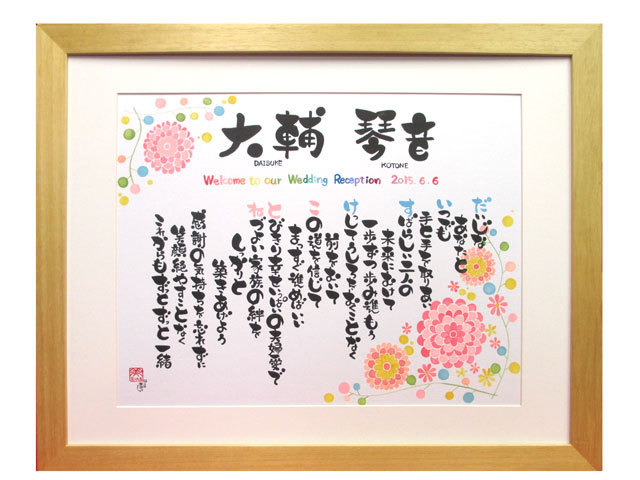 大輔 琴音
DAISUKE KOTONE
Welcome to our Wedding Reception 2015.6.6
だいじな
あなたと
いつでも
手と手を取りあい
すばらしい二人の
未来にむけて
一歩ずつ歩み進もう
けっしてうしろをむくことなく
前をむいて
この道を信じて
まっすぐ進めばいい
とびきり幸せいっぱいの夫婦愛で
ねづよい家族の絆を
しっかりと
築きあげよう
感謝の気持ちを忘れずに
笑顔絶やすことなく
これからもずっとずっと一緒